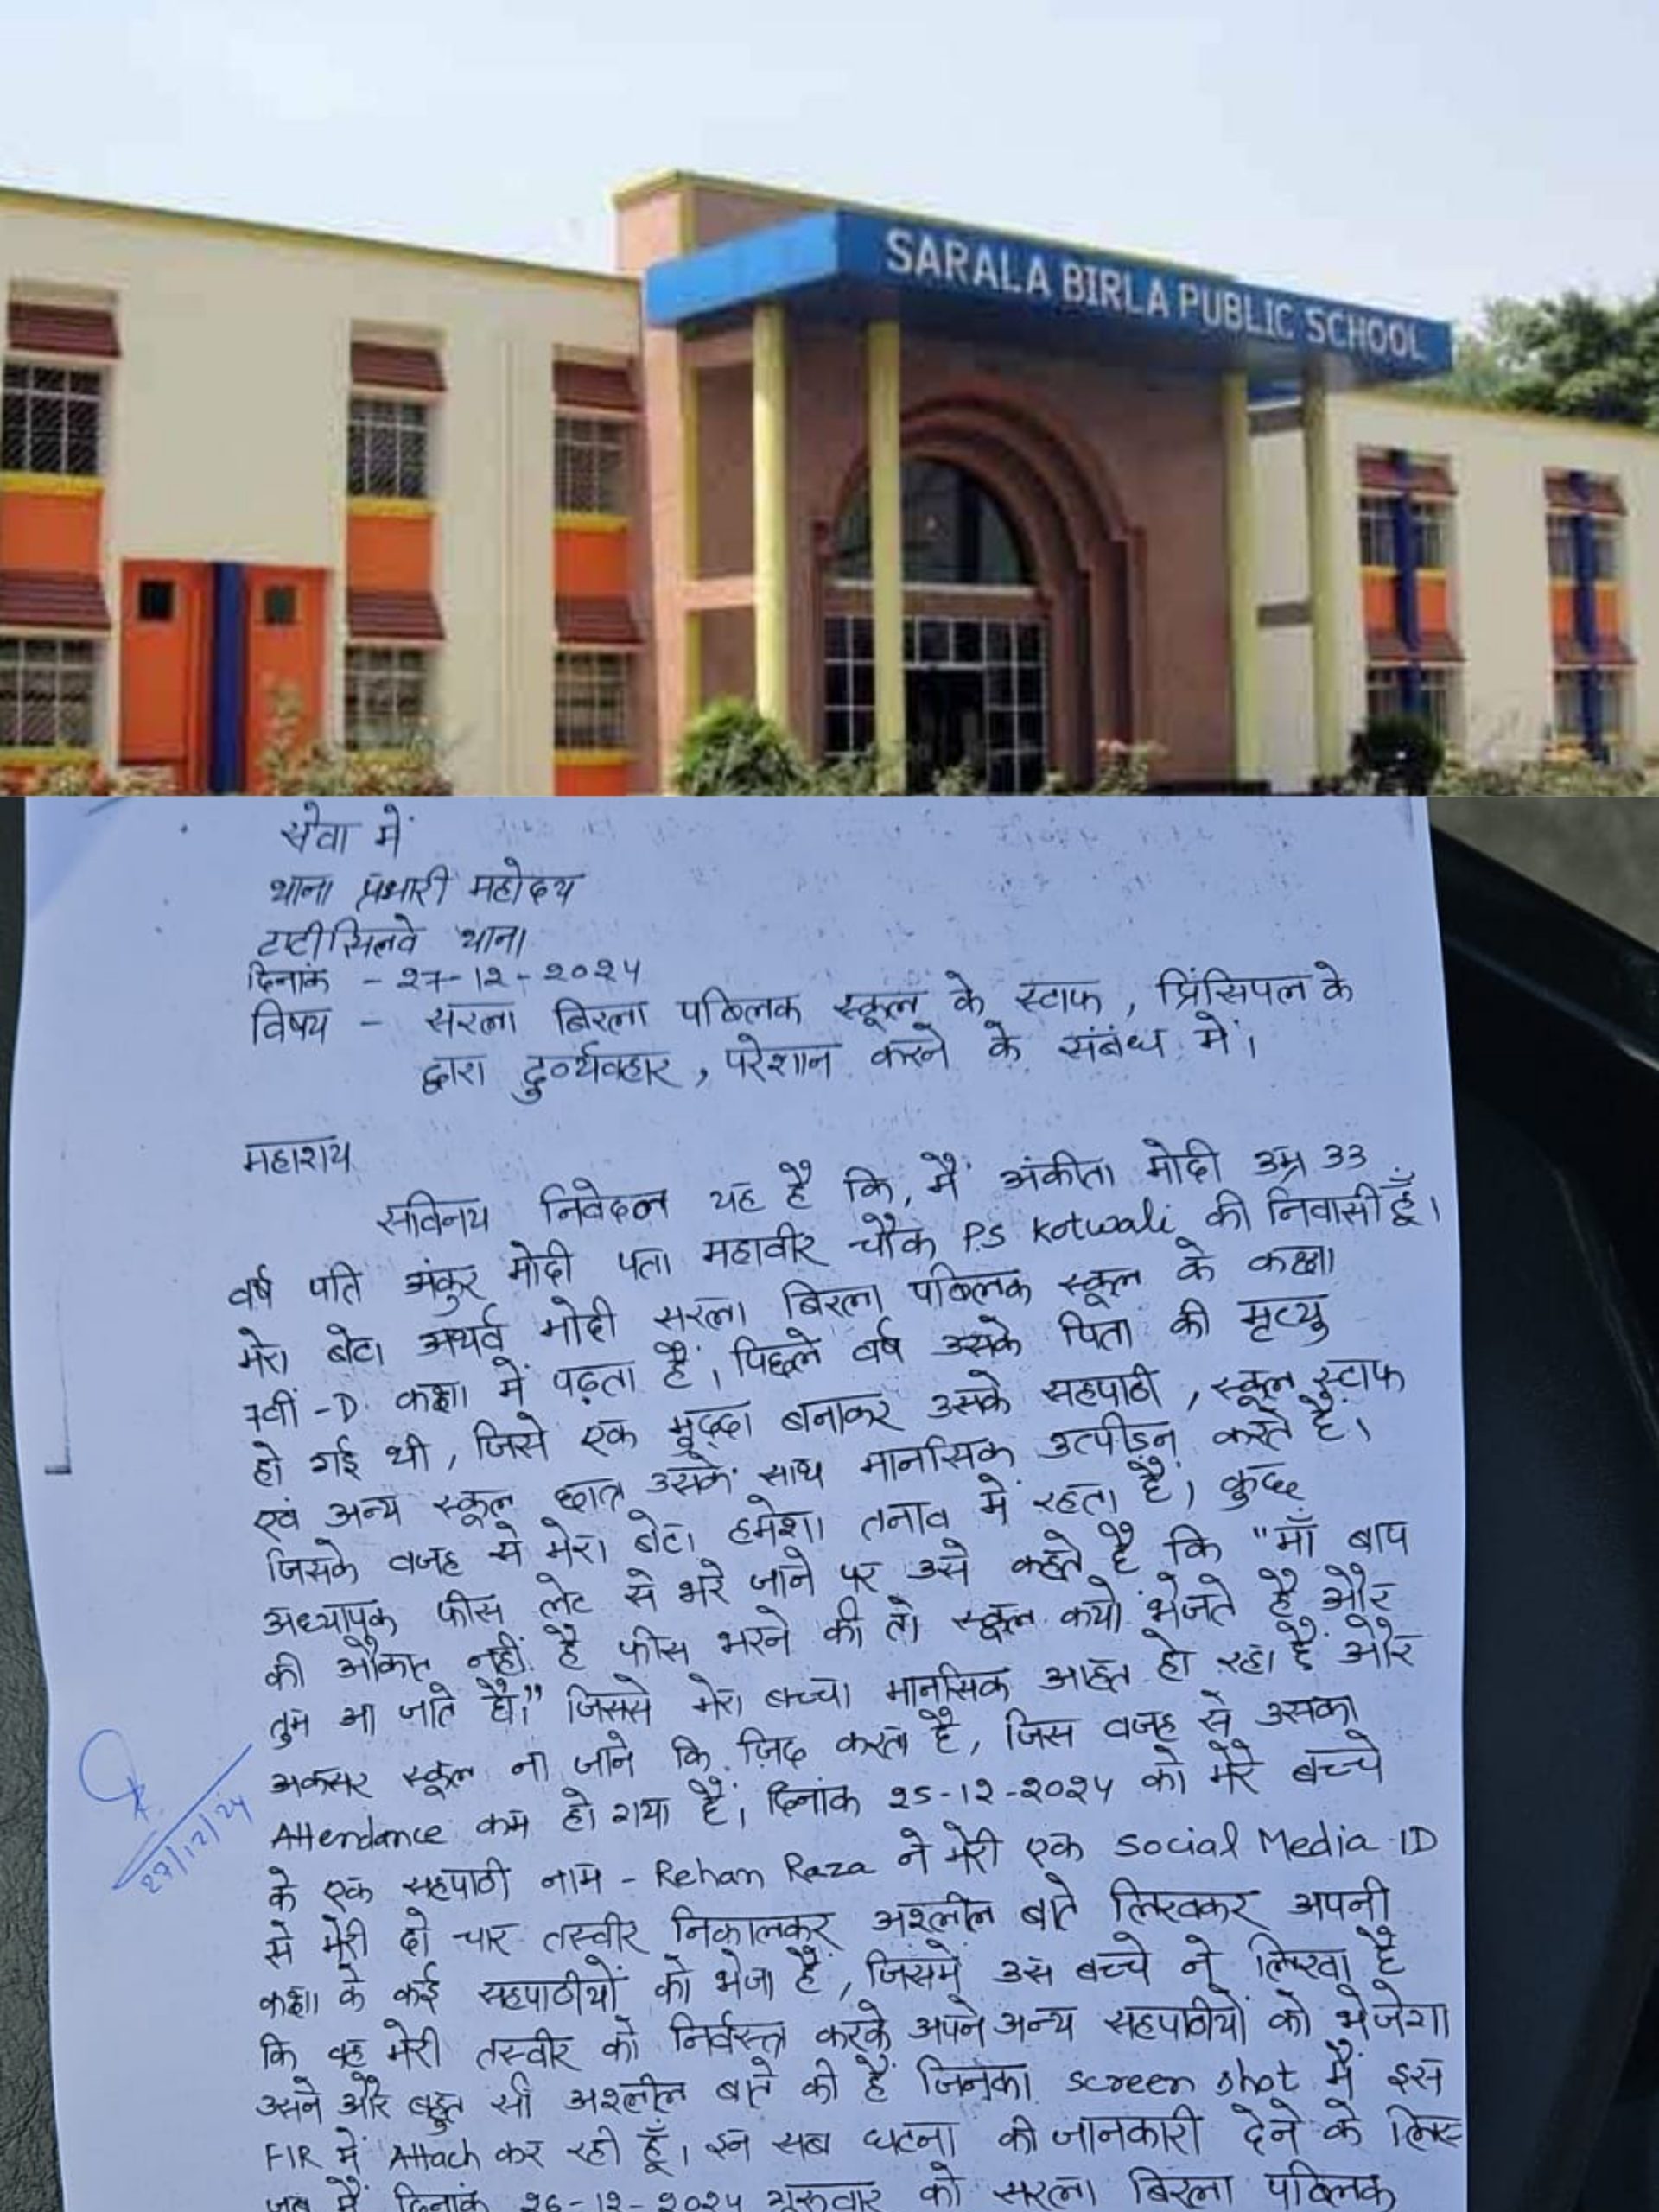 SARALA BIRLA PUBLIC SCHOOL
सेवा में
थाना प्रभारी महोदय
टाटीसिलवे थाना
दिनांक - 27-12-2024
विषय - सरला बिरला पब्लिक स्कूल के स्टाफ, प्रिंसिपल के
द्वारा दुर्व्यवहार, परेशान करने के संबंध में।
महाशय
सविनय निवेदन यह है कि, मैं अंकीता मोदी उम्र 33
वर्ष पति अंकुर मोदी पता महावीर चौक P.S Kotwali की निवासी हूँ।
मेरा बेटा अथर्व मोदी सरला बिरला पब्लिक स्कूल के कक्षा
7वीं -D. कक्षा में पढ़ता है। पिछले वर्ष उसके पिता की मृत्यु
हो गई थी, जिसे एक मुद्दा बनाकर उसके सहपाठी, स्कूल स्टाफ
एवं अन्य स्कूल छात्र उसके साथ मानसिक उत्पीड़न करते हैं।
जिसके वजह से मेरा बेटा हमेशा तनाव में रहता है। कुछ
अध्यापक फीस लेट से भरे जाने पर उसे कहते है कि "माँ बाप
की औकात नहीं है फीस भरने की तो स्कूल क्यों भेजते है और
तुम आ जाते हो।" जिससे मेरा बच्चा मानसिक आहत हो रहा है और
अकसर स्कूल ना जाने कि ज़िद करता है, जिस वजह से उसका
Attendance कम हो गया है। दिनांक 25-12-2024 को मेरे बच्चे
के एक सहपाठी नाम - Rehan Raza ने मेरी एक Social Media ID
से मेरी दो चार तस्वीर निकालकर अश्लील बाते लिखकर अपनी
कक्षा के कई सहपाठीयों को भेजा है, जिसमें उस बच्चे ने लिखा है
कि वह मेरी तस्वीर को निर्वस्त्र करके अपने अन्य सहपाठीयों को भेजेगा
उसने और बहुत सी अश्लील बाते की है जिनका screen shot मैं इस
FIR में Attach कर रही हूँ। इन सब घटना की जानकारी देने के लिए
जब मैं दिनांक 26-12-2024 गुरूवार को सरला बिरला पब्लिक
27/12/24